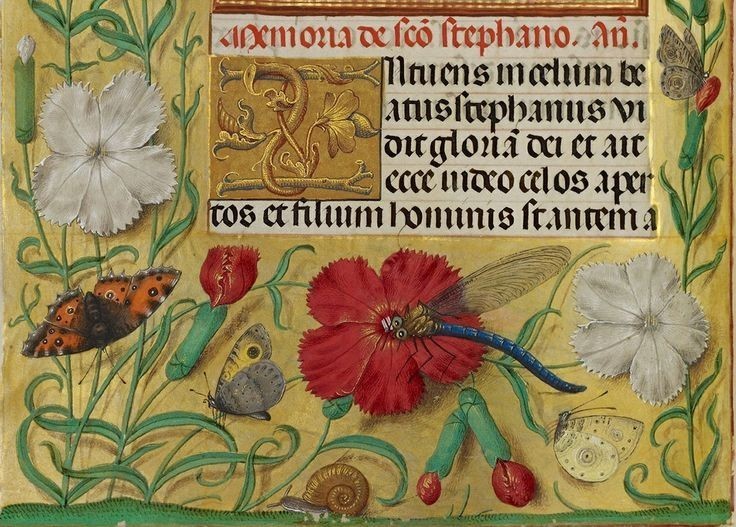 Memoria de scō stephano. An̄.
INtuens in celum be
atus stephanus vi
dit gloriā dei et ait
ecce video celos aper
tos et filium hominis stantem a